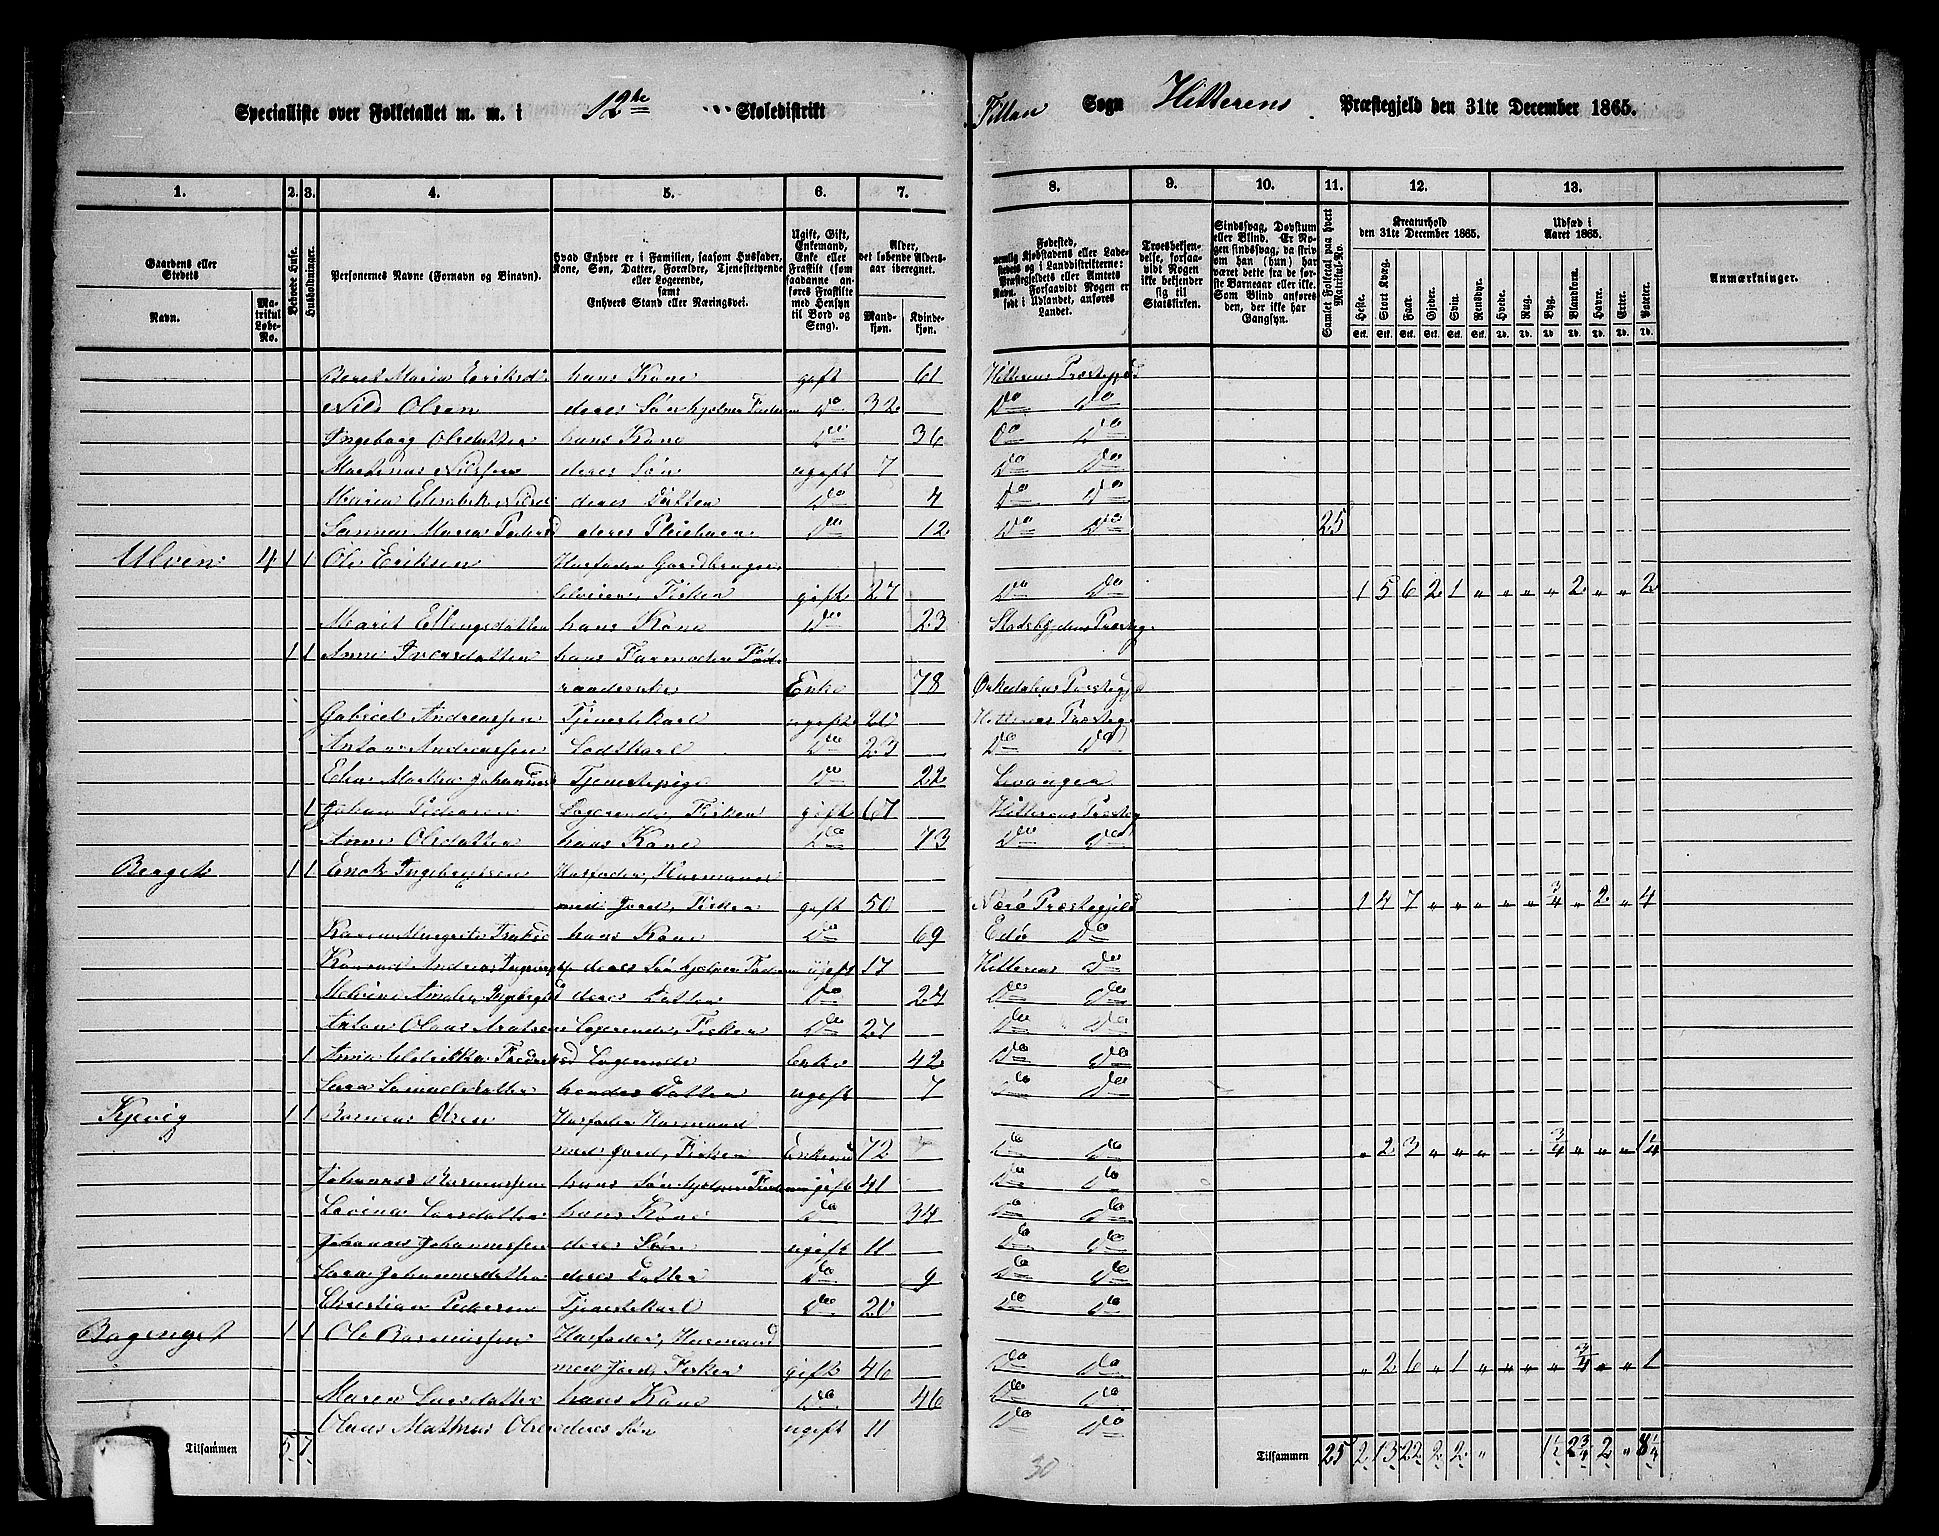 Specialliste over Folketallet m. m. i 12te Skoledistrikt Fillan Sogn Hitterens Præstegjeld den 31te December 1865.
1. 2. 3. 4. 5. 6. 7. 8. 9. 10. 11. 12. 13.
Gaardens eller Stedets
Navn.
Matrikul Løbe-No.
Beboede Huse.
Husholdninger.
Personernes Navne (Fornavn og Binavn).
Hvad Enhver er i Familien, saasom Husfader, Kone, Søn, Datter, Forældre, Tjenestetyende eller Logerende, samt Enhvers Stand eller Næringsvei.
Ugift, Gift, Enkemand, Enke eller Fraskilt (som saadanne anføres Fraskilte med Hensyn til Bord og Seng).
Alder, det løbende Aldersaar iberegnet.
Mandkjøn. Kvindekjøn.
Fødested, nemlig Kjøbstadens eller Ladestedets og i Landdistrikterne: Præstegjeldets eller Amtets Navn. Forsaavidt Nogen er født i Udlandet, anføres Landet.
Troesbekjendelse, forsaavidt Nogen ikke bekjender sig til Statskirken.
Sindssvag, Døvstum eller Blind. Er Nogen sindssvag, da skrives om han (hun) har været dette fra de første Barneaar eller ikke. Som Blind anføres den, der ikke har Gangsyn.
Samlet Folketal paa hvert Matrikul-No.
Kreaturhold den 31te December 1865.
Heste. Stort Kvæg. Faar. Gjeder. Sviin. Rensdyr.
Udsæd i Aaret 1865.
Hvede. Rug. Byg. Blandkorn. Havre. Erter. Poteter.
Anmærkninger.
Beret Maria Eriksd. hans Kone gift 61 Hitterens Præstegjeld
Nils Olsen deres Søn hjelper Faderen Do 32 Do Do
Ingeborg Olsdatter hans Kone Do 36 Do Do
Martinus Nilssen deres Søn ugift 7 Do Do
Maria Elisabet Nilsd deres Datter Do 4 Do Do
Maria Pedersd deres Pleiebarn Do 12 Do Do 25
Ulven 4 1 1 Ole Eriksen Husfader Gaardbruger
Selveier, Fisker gift 27 Do Do 1 5 6 2 1 " " " " 2 " " 2
Marit Ellingsdatter hans Kone Do 23 Stadsbygdens Præsteg.
1 1 Anne Iversdatter hans Farmoder Føde
raaderske Enke 78 Orkedalens Præstegjd
Gabriel Andreassen Tjenestekarl ugift 20 Hitterens Præsteg.
Anton Andreassen Lodskarl Do 23 Do Do
Johannesd Tjenestepige Do 22 Levanger
1 Johan Pedersen Logerende, Fisker gift 67 Hitterens Præsteg
Anne Olsdatter hans Kone Do 73 Do Do
Berget 1 1 Enok Ingebrigtsen Husfader, Husmand
med Jord, Fisker gift 50 Nærø Præstegjeld 1 4 7 " " " " " 3/4 " 2 " 4
Karen Margrete hans Kone Do 69 Edø Do
Konrad Andreas deres Søn hjelper Faderen ugift 17 Hitterens Do
deres Datter Do 24 Do Do
Anton Olaus Logerende, Fisker Do 27 Do Do
1 Anna Ulrikka Fredriksd Logerende Enke 42 Do Do
Sara hendes Datter ugift 7 Do Do
Kjevig 1 1 Rasmus Olsen Husfader Husmand
med Jord, Fisker Enkemd 72 Do Do " 2 3 " " " 3/4 " " " 1 1/4
Johannes Rasmussen hans Søn hjelper Faderen gift 41 Do Do
Lovina Larsdatter hans Kone Do 34 Do Do
Johannes Johannessen deres Søn ugift 11 Do Do
Sara Johannesdatter deres Datter Do 9 Do Do
Christian Pedersen Tjenestekarl Do 20 Do Do
Bagenget 1 1 Ole Rasmussen Husfader, Husmand
med Jord, Fisker gift 46 Do Do " 2 6 " 1 " " " " 3/4 " " 1
Maren Larsdatter hans Kone Do 46 Do Do
Olaus Mathias Olsen deres Søn ugift 11 Do Do
Tilsammen 5 7 Tilsammen 25 2 13 22 2 2 " 1 1/2 2 3/4 2 " 8 1/4
30